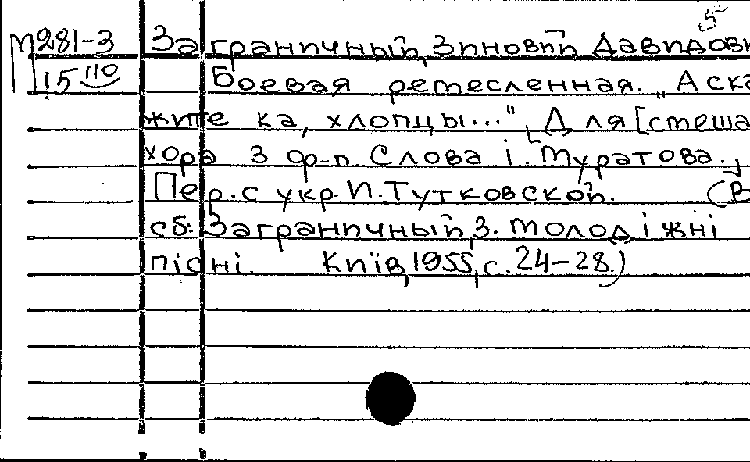 5
М281-3 Заграничный, Зиновий Давидови
15 110 Боевая ремесленная. „А ска
жите ка, хлопцы...", Для [смеша
хора з ф-п. Слова І. Муратова.,
Пер. с укр И. Тутковской. (В
сб: Заграничный, З. Молодіжні
пісні. Київ, 1955, с. 24-28.)